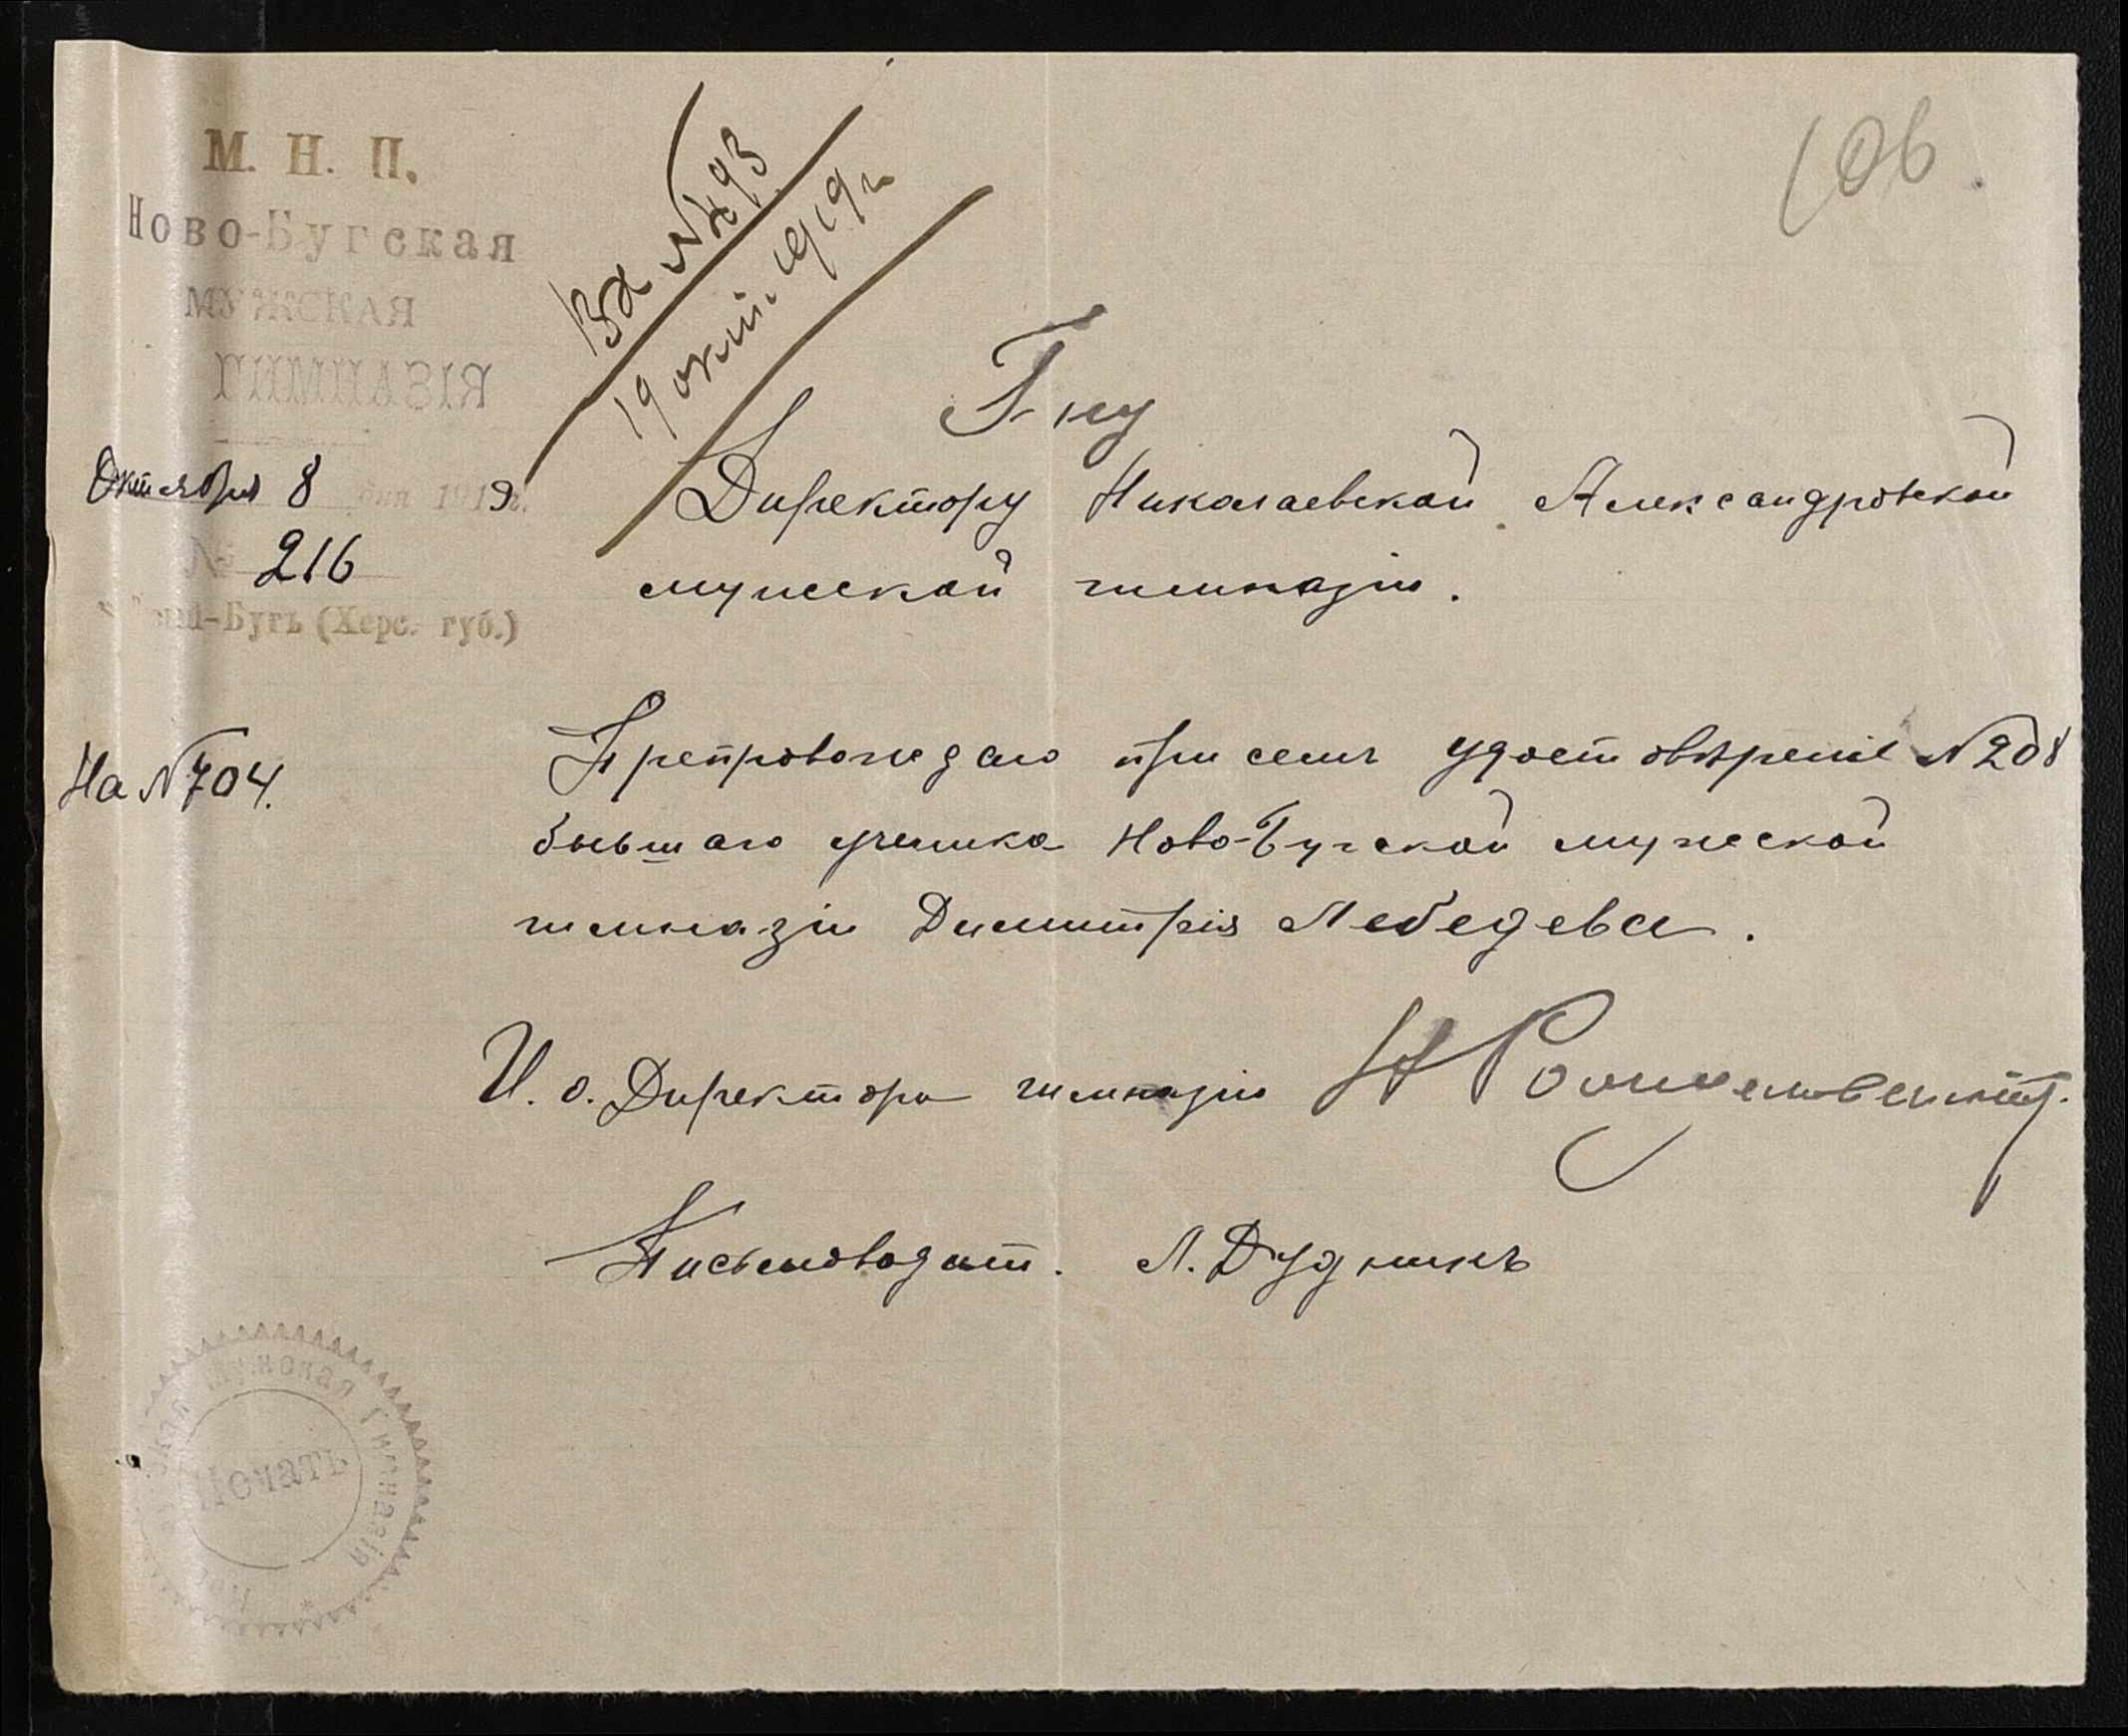 М. Н. П.
Ново-Бугская
МУЖСКАЯ
ГИМНАЗІЯ
Октября 8 дня 1919 г.
№ 216
-Бугъ (Херс. губ.)
На № 704.
Вх. № 493
19 окт. 1919 г
106
Г-ну
Директору Николаевской Александровской
мужской гимназіи.
Препровождаю при семъ удостовѣреніе № 208
бывшаго ученика Ново-Бугской мужской
гимназіи Димитрія Лебедева.
И. о. Директора гимназіи Н
Письмоводит. Л. Дудникъ
мужская Гимназія
Печать